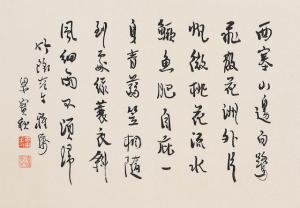 西塞山邊白鷺
飛散花洲外片
帆微桃花流水
鱖魚肥自庇一
身青蒻笠相隨
到處綠蓑衣斜
風細雨不須歸